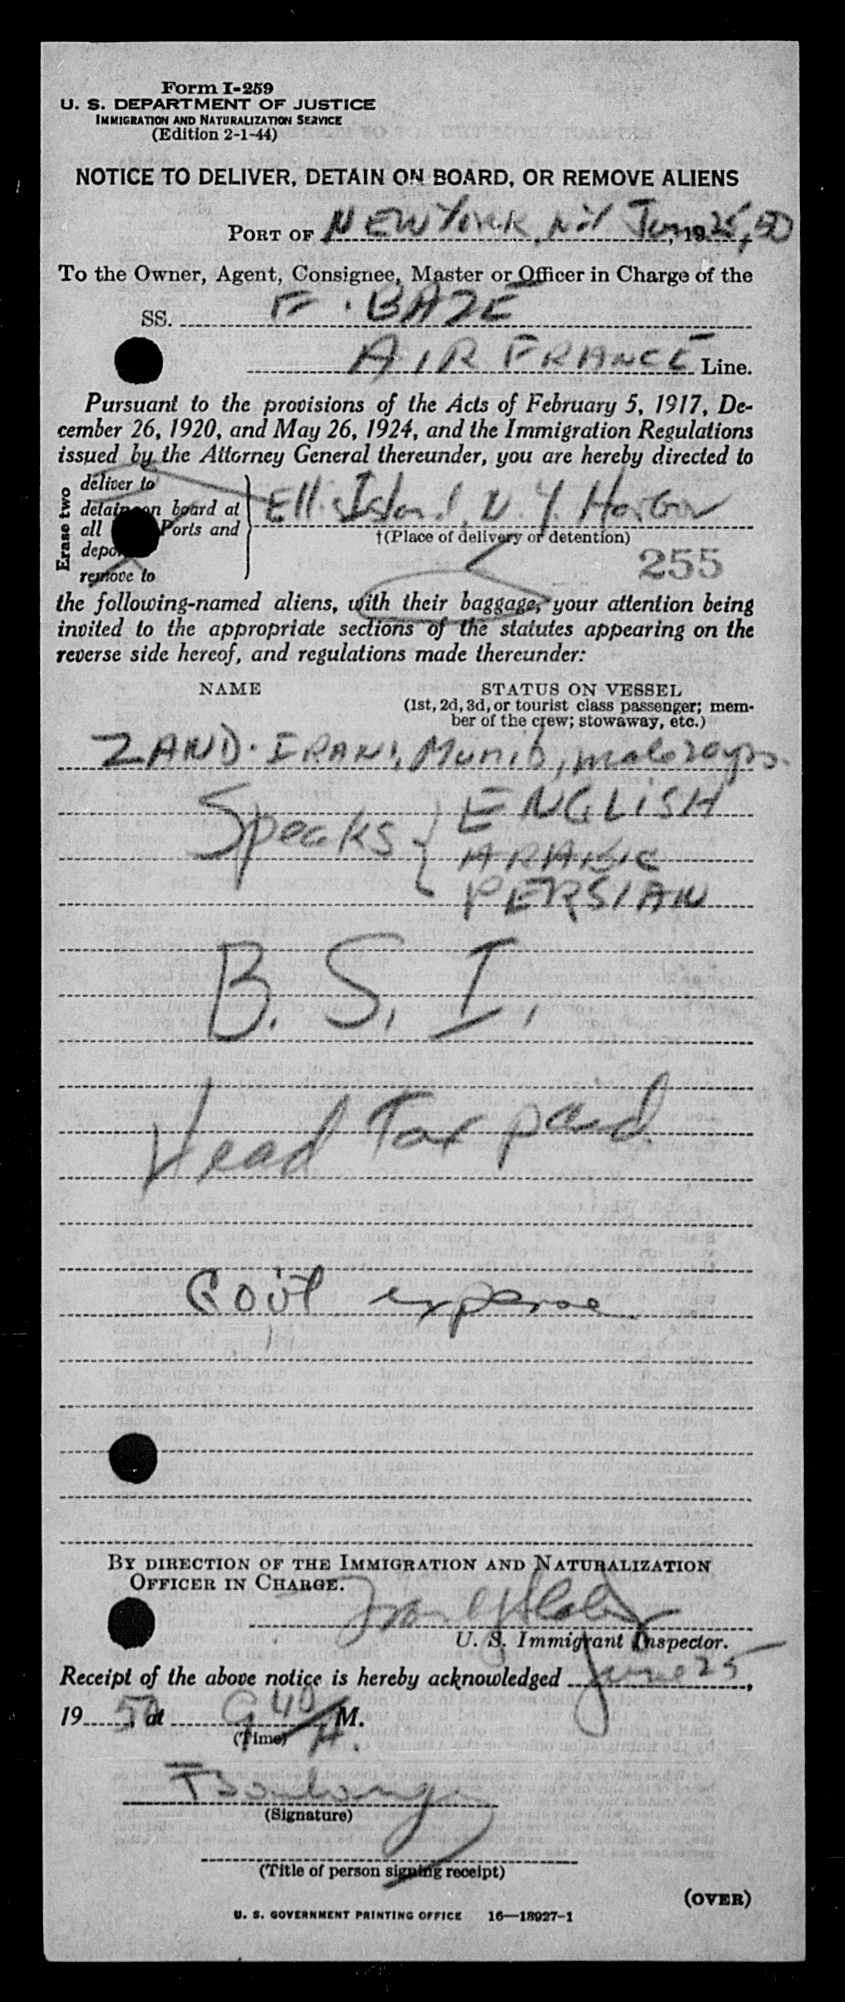 Form I-259
U. S. DEPARTMENT OF JUSTICE
IMMIGRATION AND NATURALIZATION SERVICE
(Edition 2-1-44)
NOTICE TO DELIVER, DETAIN ON BOARD, OR REMOVE ALIENS
PORT OF NEW YORK, N.Y June 25, 50, 19
To the Owner, Agent, Consignee, Master or Officer in Charge of the
SS. F. BAZE
AIR FRANCE Line.
Pursuant to the provisions of the Acts of February 5, 1917, De-
cember 26, 1920, and May 26, 1924, and the Immigration Regulations
issued by the Attorney General thereunder, you are hereby directed to
Erase two
deliver to
detain on board at
all Ports and
remove to
Ellis Island, N. Y. Harbor
†(Place of delivery or detention)
255
the following-named aliens, with their baggage, your attention being
invited to the appropriate sections of the statutes appearing on the
reverse side hereof, and regulations made thereunder:
NAME STATUS ON VESSEL
(1st, 2d, 3d, or tourist class passenger; mem-
ber of the crew; stowaway, etc.)
ZAND-IRANI, Munib, male 20 yrs.
Speaks { ENGLISH
ARABIC
PERSIAN
B. S. I.
Head Tax paid
Gov't expense
BY DIRECTION OF THE IMMIGRATION AND NATURALIZATION
OFFICER IN CHARGE.
U. S. Immigrant Inspector.
Receipt of the above notice is hereby acknowledged June 25,
19 50, at 9 40 A. M.
(Time)
(Signature)
(Title of person signing receipt)
(OVER)
U. S. GOVERNMENT PRINTING OFFICE 16—18927-1